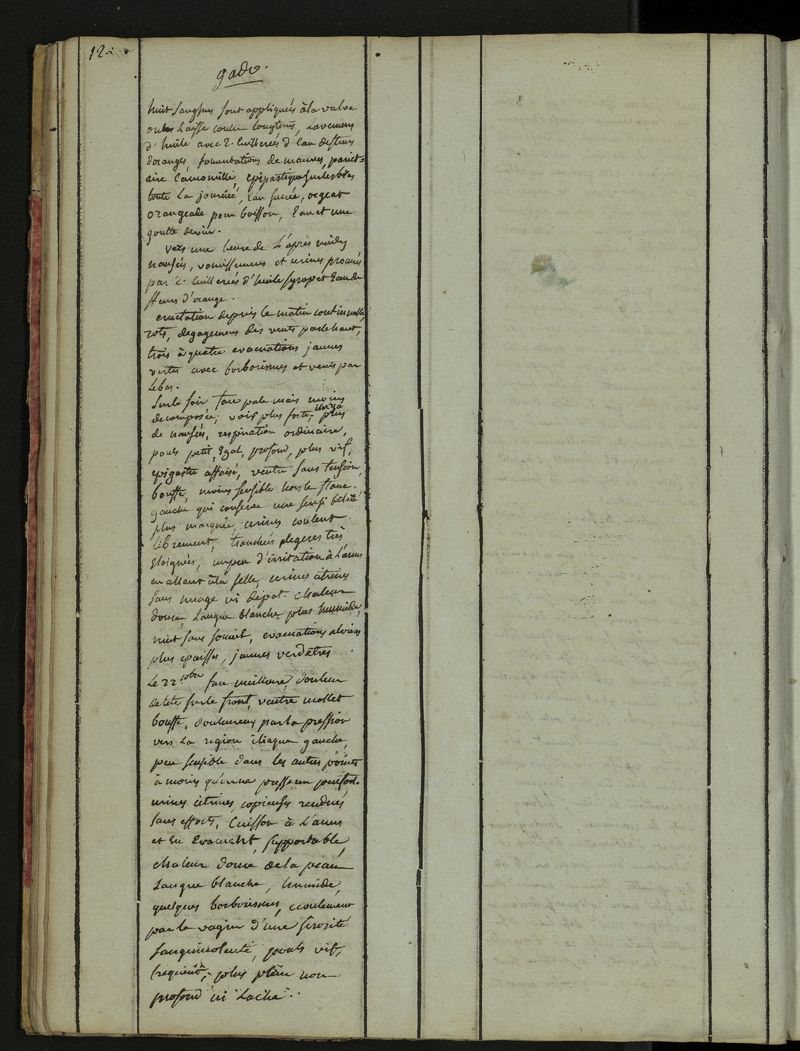 12.
gado.
huit sangsues sont appliquées à la vulve
on les laisse couler longtems, lavemens
d'huile avec 2. cuillerées d'eau de fleurs
d'oranges, fomentations de mauves, pariet-
aire camomille, epispastiques sur les bras
toute la journée, Eau sucrée, orgeat
orangeade pour boisson, Eau et une
goutte de vin.
vers une heure de L'après midy
nausées, vomissemens et urines provoqués
par 2. cuillerées d'huile syrop et Eau de
fleurs d'orange.
eructation depuis le matin continuelle,
rots, degagemens des vents par le haut,
trois à quatre evacuations jaunes
vertes avec borborismes et vents par
Le bas.
Sur le soir face pale mais moins
decomposée, voix plus forte, il n'y a plus
de nausées, respiration ordinaire,
pouls petit, Egal, profond, plus vif,
epigastre affaisé, ventre sans tension,
bouffi, moins sensible hors le flanc
gauche qui conserve une sensibilité
plus marquée, urines coulent
librement, tranchées legeres très
Eloignées, un peu d'irritation à L'anus
en allant à la selle, urines citrines
sans nuage ni depot. chaleur
douce, Langue blanche plus humide,
nuit sans someil, evacuations alvines
plus epaisses, jaunes verdatres.
Le 22 8bre face meilleure, douleur
de tete sur le front, ventre mollet
bouffi, douloureux par la pression
vers la region iliaque gauche,
peu sensible dans les autres points
à moins qu'on ne presse un peu fort.
urines citrines copieuses rendues
sans efforts. Cuisson à L'anus
et en Evacuant, supportable,
chaleur douce de la peau
Langue blanche, humide,
quelques borborismes, ecoulement
par le vagin d'une serosité
sanguinolente, pouls vif,
frequent, plus plein non
profond ni Lache.